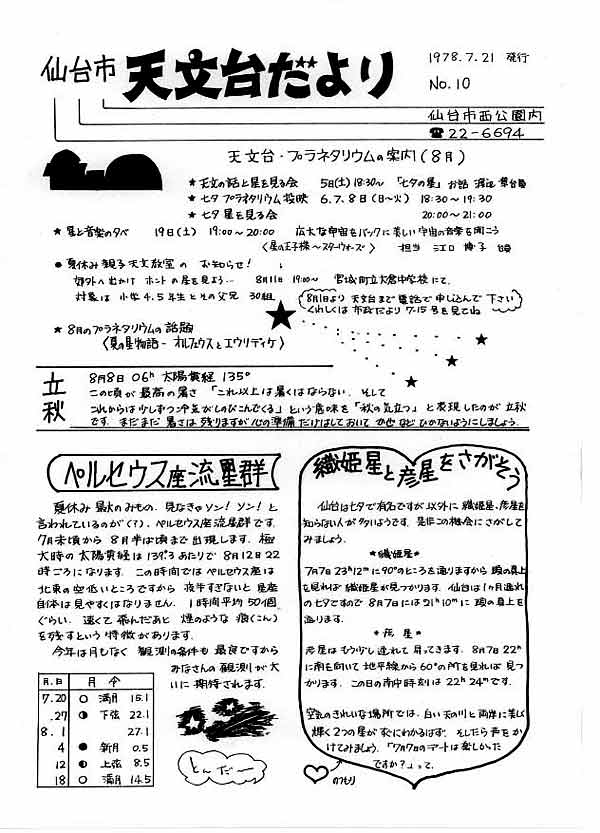 仙台市 天文台だより
1978.7.21 発行
No.10
仙台市西公園内
☎22-6694
天文台・プラネタリウムの案内(8月)
★ 天文の話と星を見る会 5日(土) 18:30〜 「七夕の星」 お話
★ 七夕 プラネタリウム投映 6.7.8日(日〜火) 18:30〜19:30
★ 七夕 星を見る会 20:00〜21:00
★ 星と音楽の夕べ 19日(土) 19:00〜20:00 広大な宇宙をバックに美しい宇宙の音楽を聞こう
〈星の王子様〜スターウォーズ〉 担当 江口
● 夏休み親子天文教室の お知らせ!
郊外へ出かけ ホントの星を見よう… 8月11日 19:00〜 宮城町立大倉中学校にて.
対象は 小学4.5年生とその父兄 30組
8月1日より 天文台まで電話で申し込んで下さい
くわしくは 市政だより 7-15号を見てね
★ 8月のプラネタリウムの話題
〈夏の星物語 - オルフェウスとエウリディケ〉
立秋
8月8日 06h 太陽黄経 135°
この頃が最高の暑さ 「これ以上は暑くはならない. そして
これからは少しずつ冷気がしのびこんでくる」という意味を「秋の気立つ」と表現したのが立秋
です. まだまだ 暑さは残りますが心の準備だけはしておいて かぜなどひかないようにしましょう.
ペルセウス座流星群
夏休み最大のみもの. 見なきゃソン! ソン! と
言われているのが(?)、ペルセウス座流星群です.
7月末頃から 8月半ば頃まで出現します. 極
大時の太陽黄経は 139°.3あたりで 8月12日 22
時ごろになります. この時間ではペルセウス座は
北東の空低いところですから 夜半すぎないと星座
自体は見やすくはなりません. 1時間平均50個
ぐらい. 速くて飛んだあと 煙のような 痕(こん)
を残すという特徴があります.
今年は月もなく 観測の条件も 最良ですから
みなさんの観測が大
いに期待されます.
月.日 月令
7.20 ○ 満月 15.1
.27 ◑ 下弦 22.1
8.1 27.1
4 ● 新月 0.5
12 ◐ 上弦 8.5
18 ○ 満月 14.5
とんだー
織姫星と彦星をさがそう
仙台は七夕で有名ですが以外に 織姫星.彦星を
知らない人が多いようです. 是非この機会にさがして
みましょう.
*織姫星*
7月7日 23h12mに90°のところを通りますから 頭の真上
を見れば 織姫星が見つかります. 仙台は1ヶ月遅れ
の七夕ですので 8月7日には 21h10mに 頭の真上を
通ります.
*彦星*
彦星はもう少し遅れて昇ってきます. 8月7日 22h
に南を向いて 地平線から60°の所を見れば 見つ
かります. この日の南中時刻は 22h24mです.
空気のきれいな場所では. 白い天の川と両岸に美しく
輝く2つの星が すぐにわかるはず. そしたら声をか
けてみましょう. 「ワクワクのデートは楽しかった
ですか?」って.
のつもり